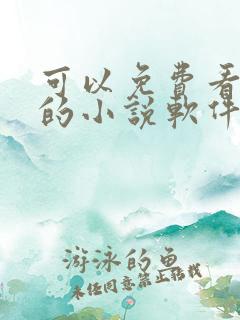 可以免費看
的小說軟件
游泳的魚
未經同意禁止轉載